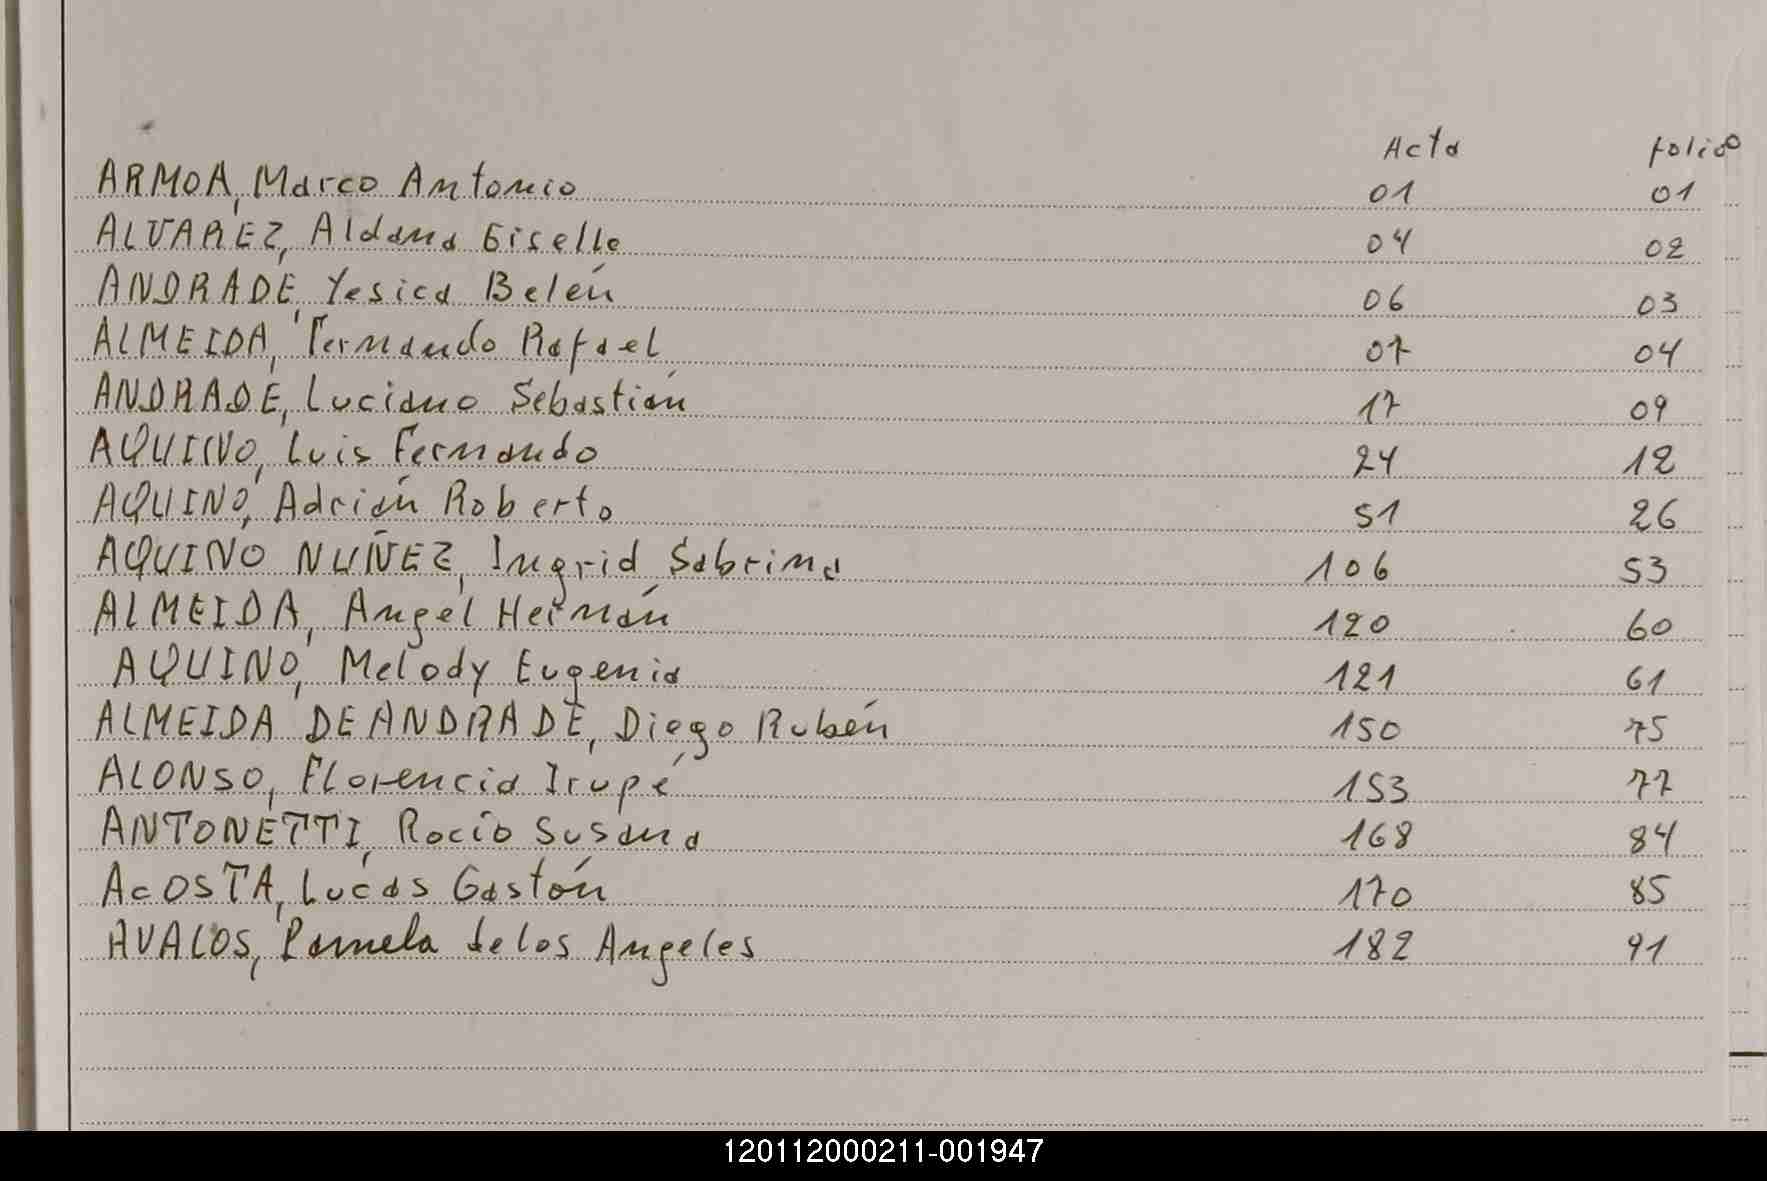 Acta folio
ARMOA, Marco Antonio 01 01
ALVAREZ, Aldana Giselle 04 02
ANDRADE, Yesica Belén 06 03
ALMEIDA, Fernando Rafael 07 04
ANDRADE, Luciano Sebastián 17 09
AQUINO, Luis Fernando 24 12
AQUINO, Adrián Roberto 51 26
AQUINO NUÑEZ, Ingrid Sabrina 106 53
ALMEIDA, Angel Hernán 120 60
AQUINO, Melody Eugenia 121 61
ALMEIDA DE ANDRADE, Diego Rubén 150 75
ALONSO, Florencia Irupé 153 77
ANTONETTI, Rocío Susana 168 84
AcOSTA, Lucas Gastón 170 85
AVALOS, Pamela de los Angeles 182 91
120112000211-001947